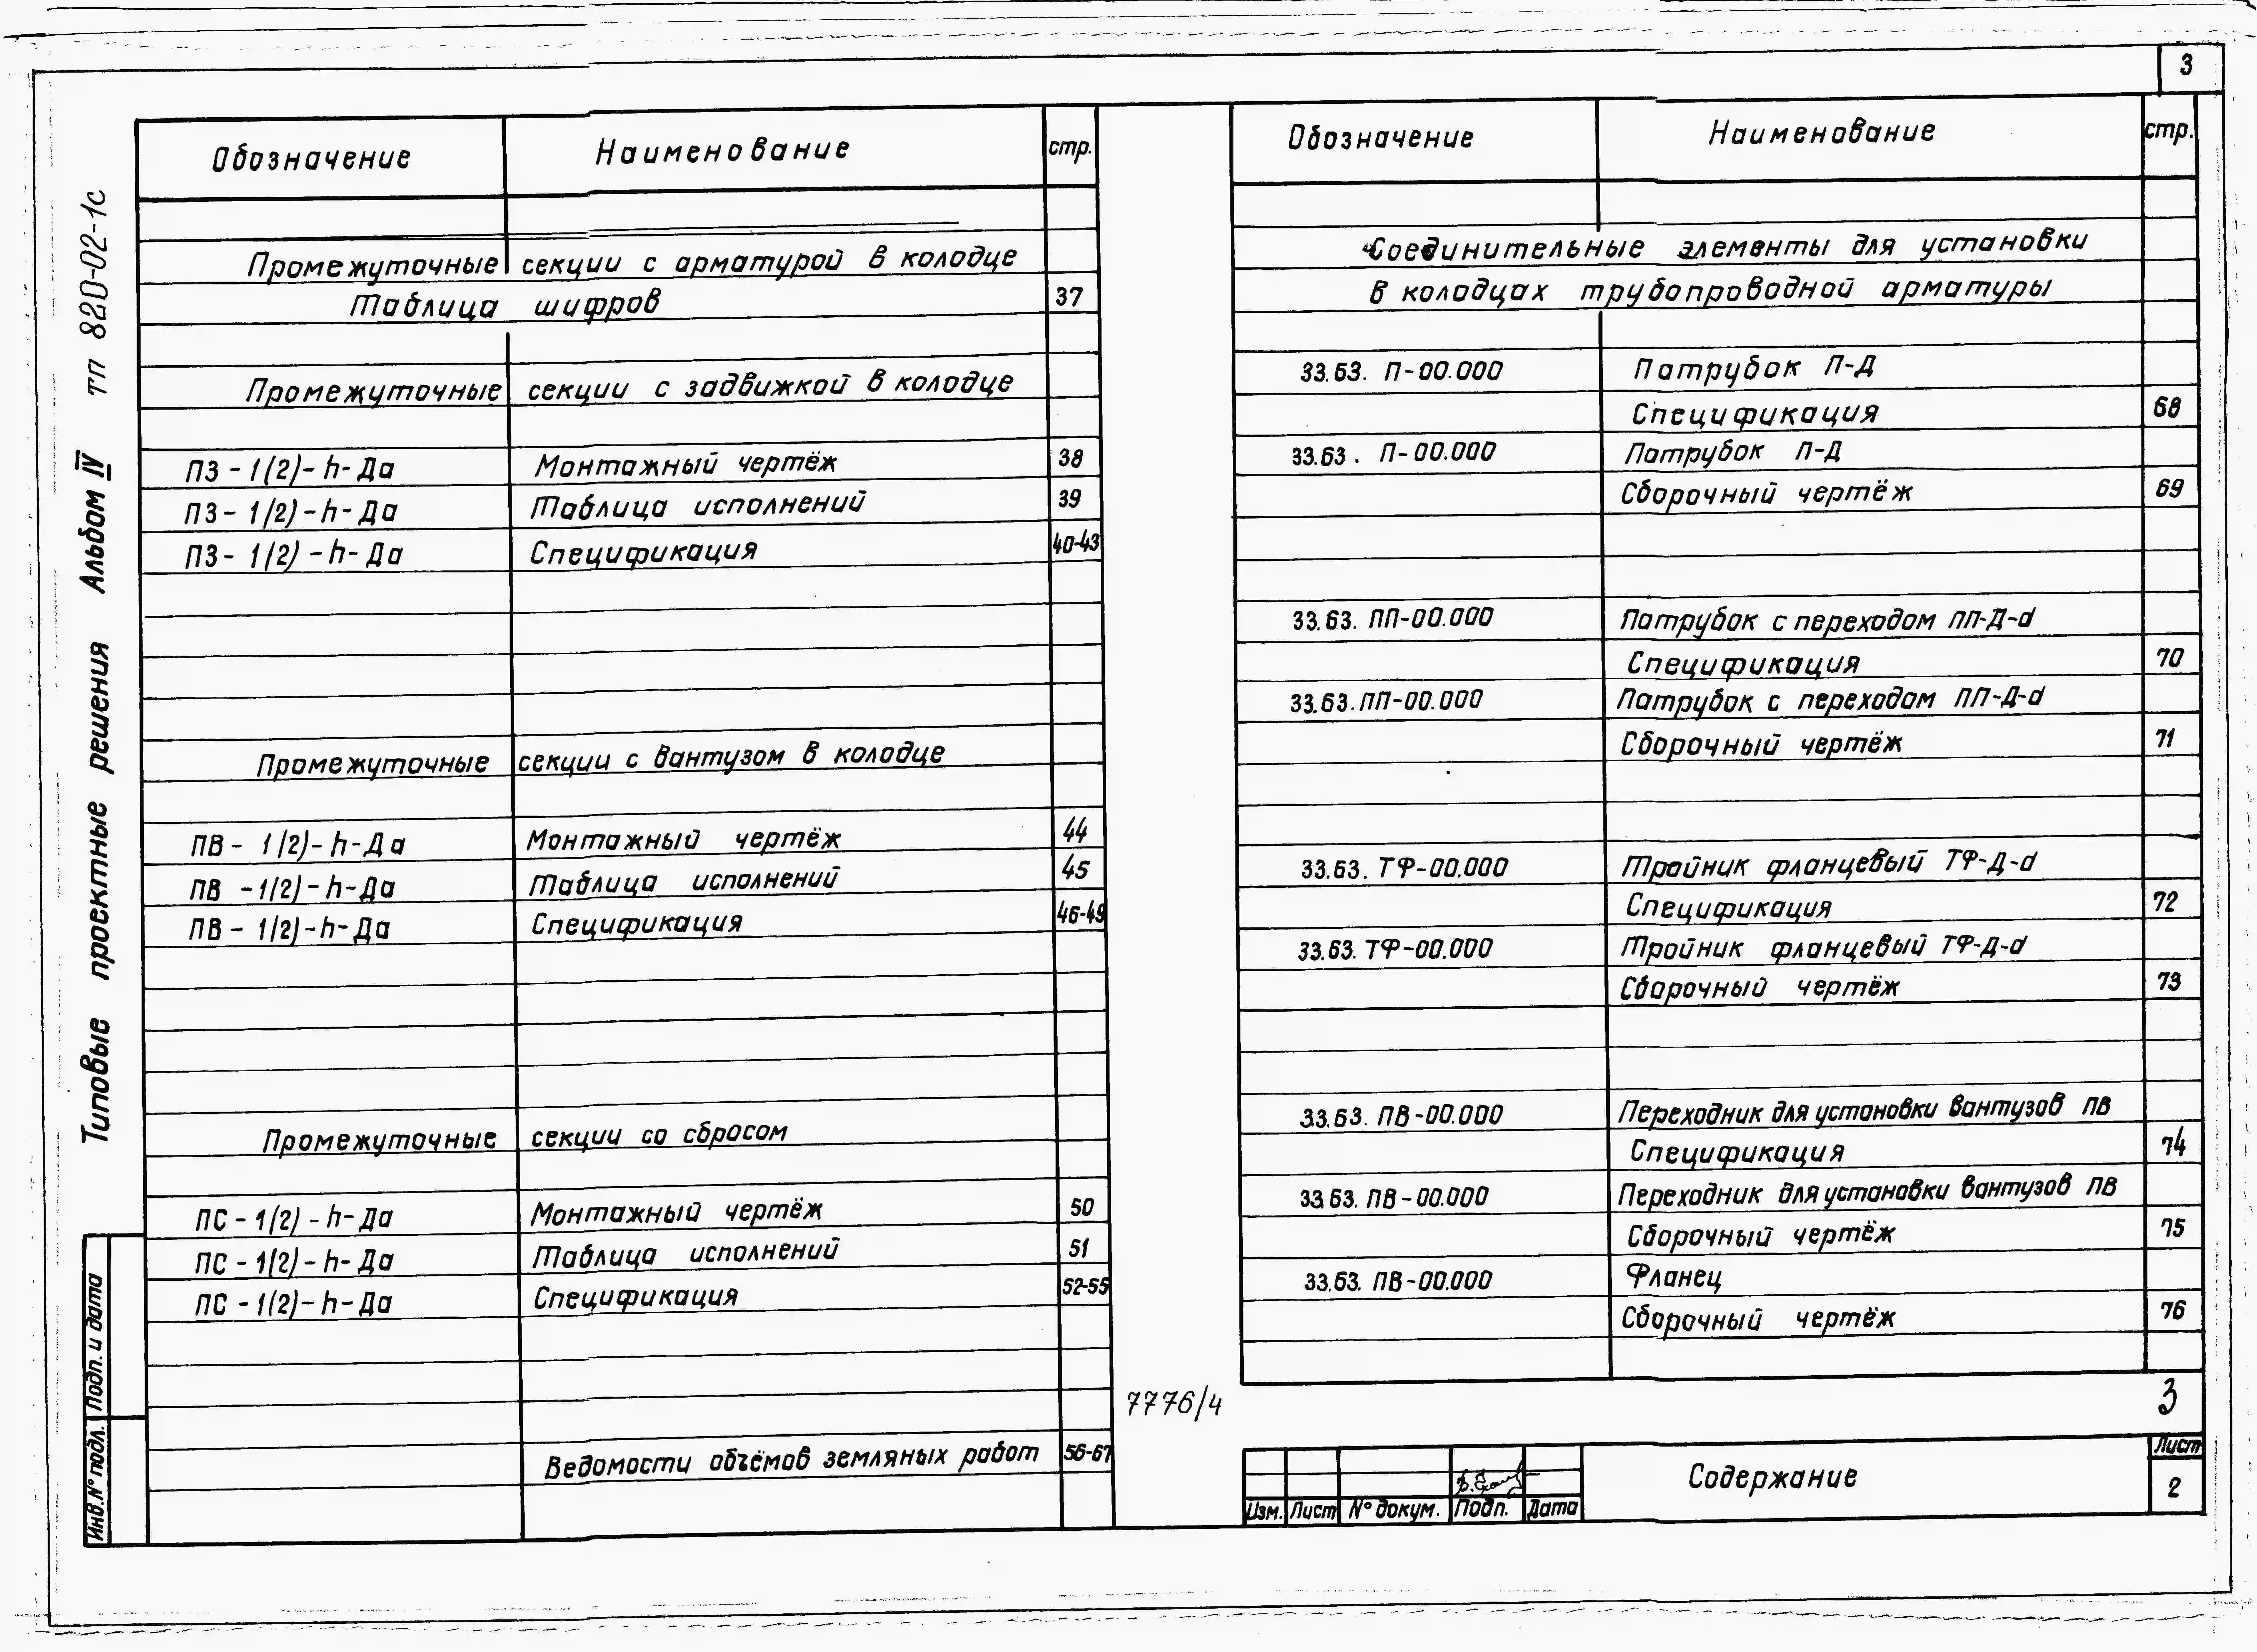 3
Типовые проектные решения Альбом IV тп 820-02-1с
Обозначение Наименование стр.
Промежуточные секции с арматурой в колодце
Таблица шифров 37
Промежуточные секции с задвижкой в колодце
ПЗ-1(2)-h-Да Монтажный чертёж 38
ПЗ-1/2)-h-Да Таблица исполнений 39
ПЗ-1/2)-h-Да Спецификация 40-43
Промежуточные секции с вантузом в колодце
ПВ-1/2)-h-Да Монтажный чертёж 44
ПВ-1/2)-h-Да Таблица исполнений 45
ПВ-1/2)-h-Да Спецификация 46-49
Промежуточные секции со сбросом
ПС-1(2)-h-Да Монтажный чертёж 50
ПС-1(2)-h-Да Таблица исполнений 51
ПС-1(2)-h-Да Спецификация 52-55
Ведомости объёмов земляных работ 56-67
Обозначение Наименование стр.
Соединительные элементы для установки
в колодцах трубопроводной арматуры
33.63. П-00.000 Патрубок П-Д
Спецификация 68
33.63. П-00.000 Патрубок П-Д
Сборочный чертёж 69
33.63. ПП-00.000 Патрубок с переходом ПП-Д-d
Спецификация 70
33.63. ПП-00.000 Патрубок с переходом ПП-Д-d
Сборочный чертёж 71
33.63. ТФ-00.000 Тройник фланцевый ТФ-Д-d
Спецификация 72
33.63. ТФ-00.000 Тройник фланцевый ТФ-Д-d
Сборочный чертёж 73
33.63. ПВ-00.000 Переходник для установки вантузов ПВ
Спецификация 74
33.63. ПВ-00.000 Переходник для установки вантузов ПВ
Сборочный чертёж 75
33.63. ПВ-00.000 Фланец
Сборочный чертёж 76
7776/4
3
Изм. Лист № докум. Подп. Дата
Содержание
Лист
2
Инв. № подл. Подп. и дата